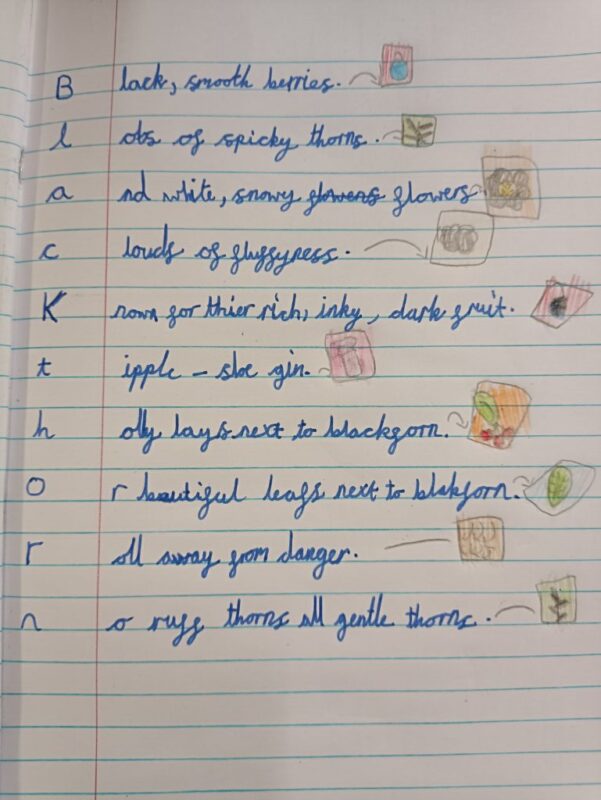 B lack, smooth berries.
l obs of spicky thorns.
a nd white, snowy flowers flowers
c louds of fluffyness.
K nown for thier rich, inky, dark fruit.
t ipple - sloe gin.
h olly lays next to blackforn.
o r beutiful leafs next to blakforn.
r oll away from danger.
n o ruff thorns all gentle thorns.